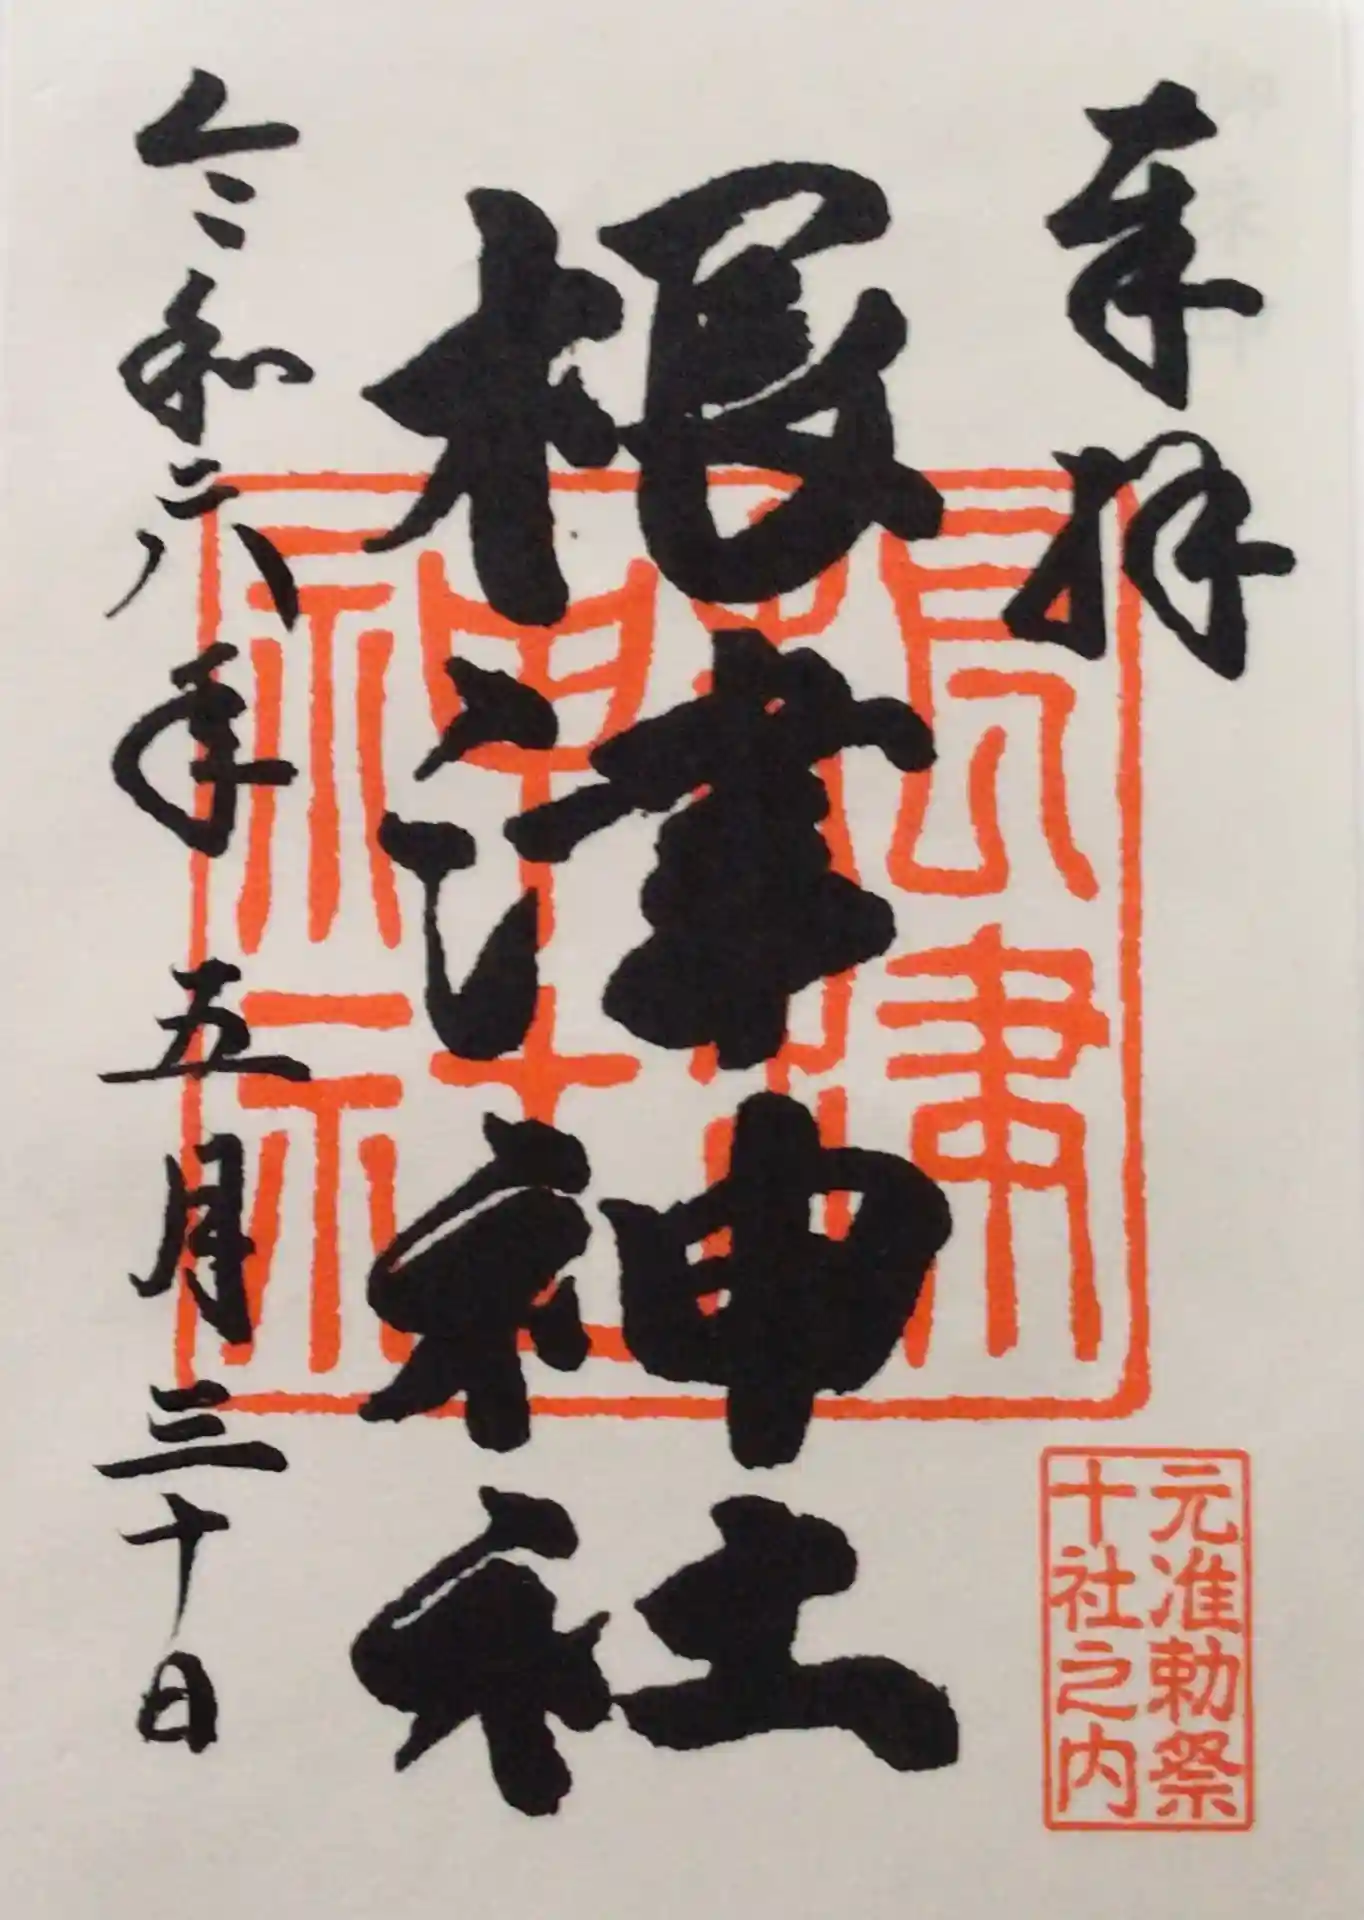 奉拝
根津神社
令和六年五月三十日
根津
神社
元准勅祭
十社之内